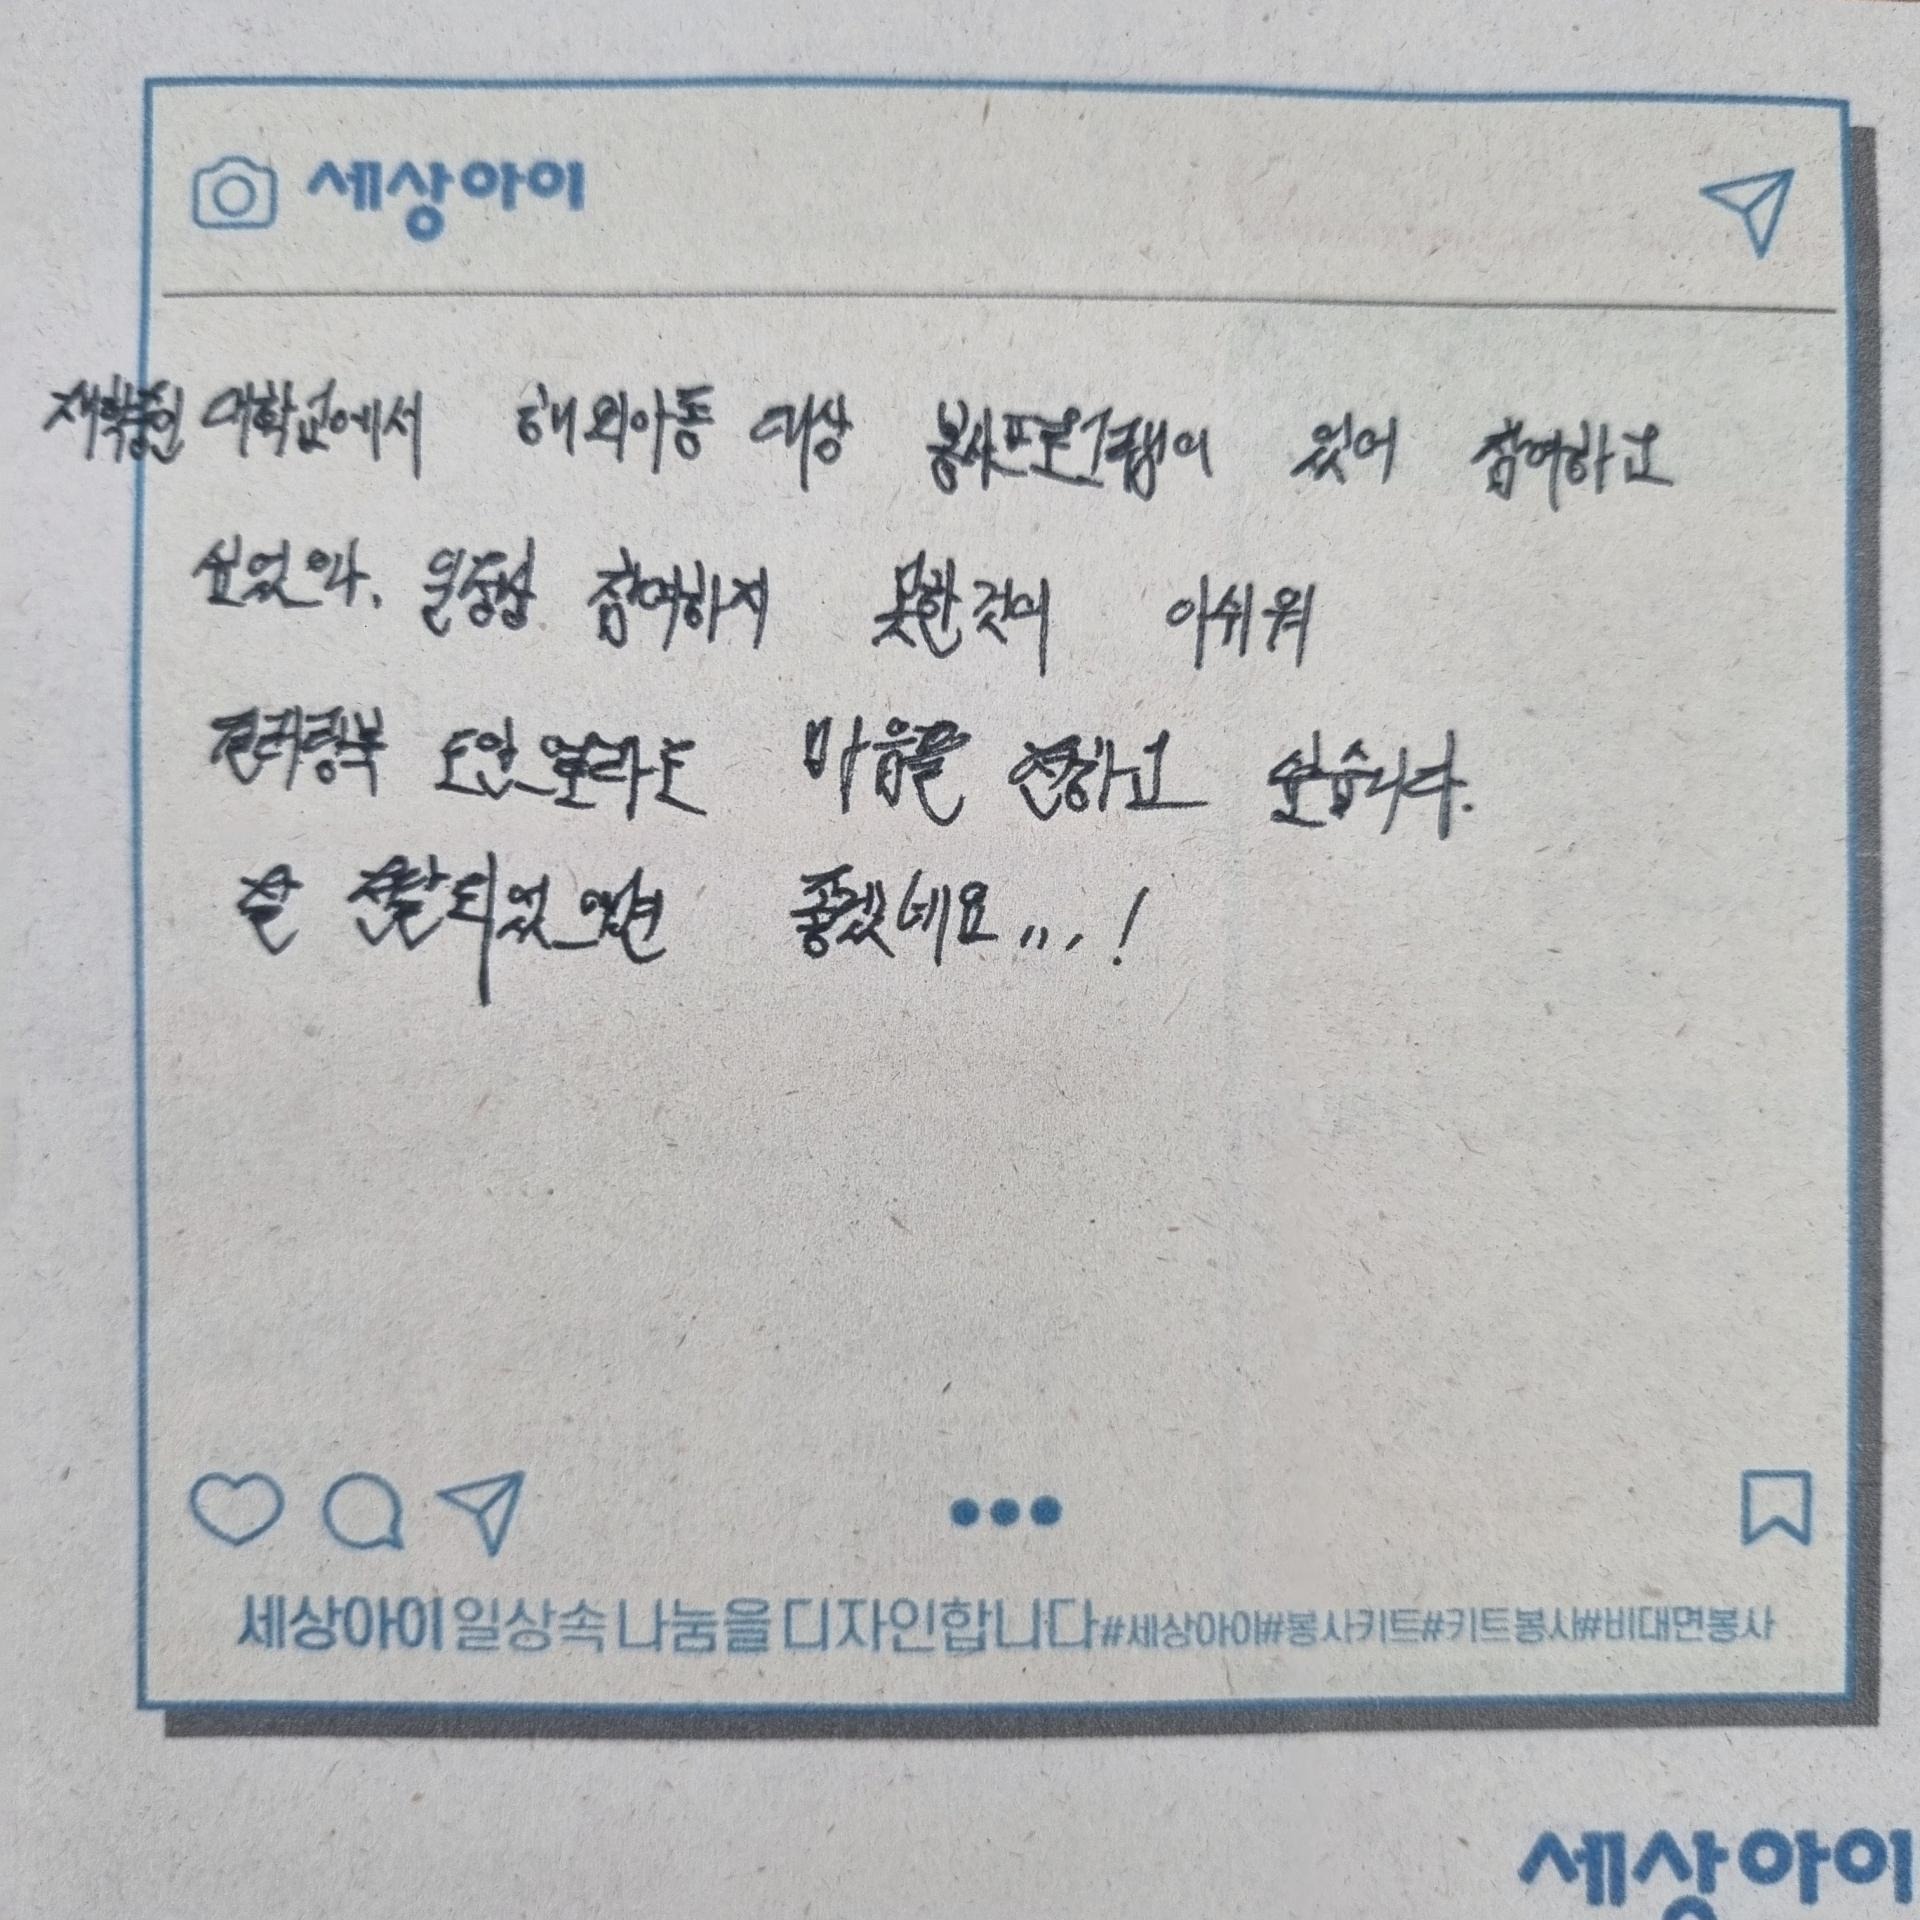 세상아이
재학중인 대학교에서 해외아동 대상 봉사프로그램이 있어 참여하고
싶었으나, 일정상 참여하지 못한것이 아쉬워
컬러링북 도안으로라도 마음을 전하고 싶습니다.
잘 전달되었으면 좋겠네요...!
세상아이 일상속 나눔을 디자인합니다 #세상아이#봉사키트#키트봉사#비대면봉사
세상아이